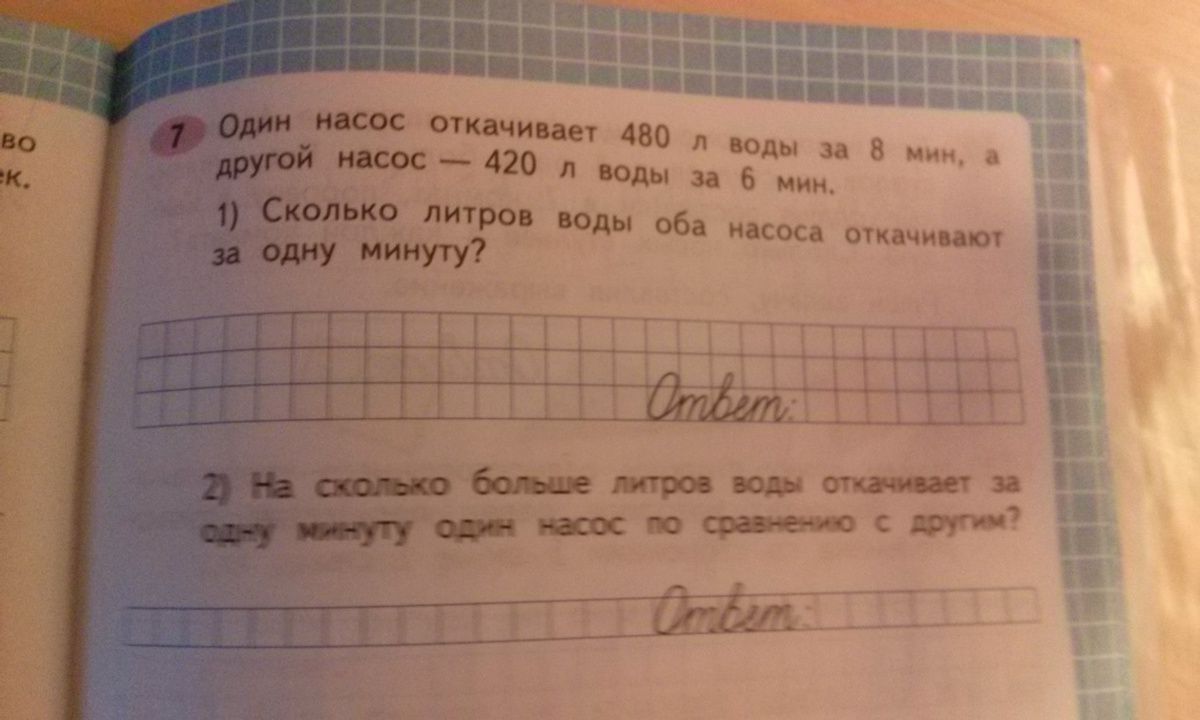 во
ек.
7 Один насос откачивает 480 л воды за 8 мин, а
другой насос — 420 л воды за 6 мин.
1) Сколько литров воды оба насоса откачивают
за одну минуту?
Ответ:
2) На сколько больше литров воды откачивает за
одну минуту один насос по сравнению с другим?
Ответ: